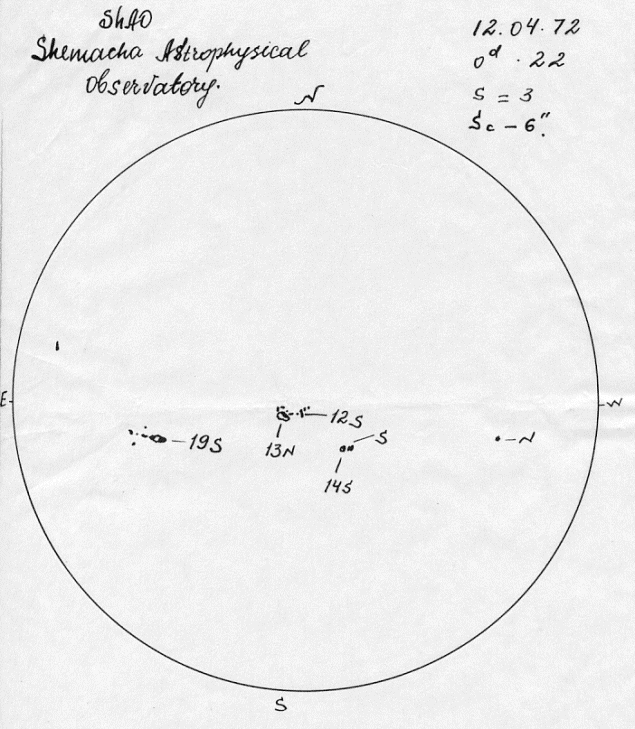 ShAO
Shemacha Astrophysical
Observatory.
12.04.72
0ᵈ.22
S = 3
Sc – 6".
N
E
W
12S
13N
S
14S
19S
N
S